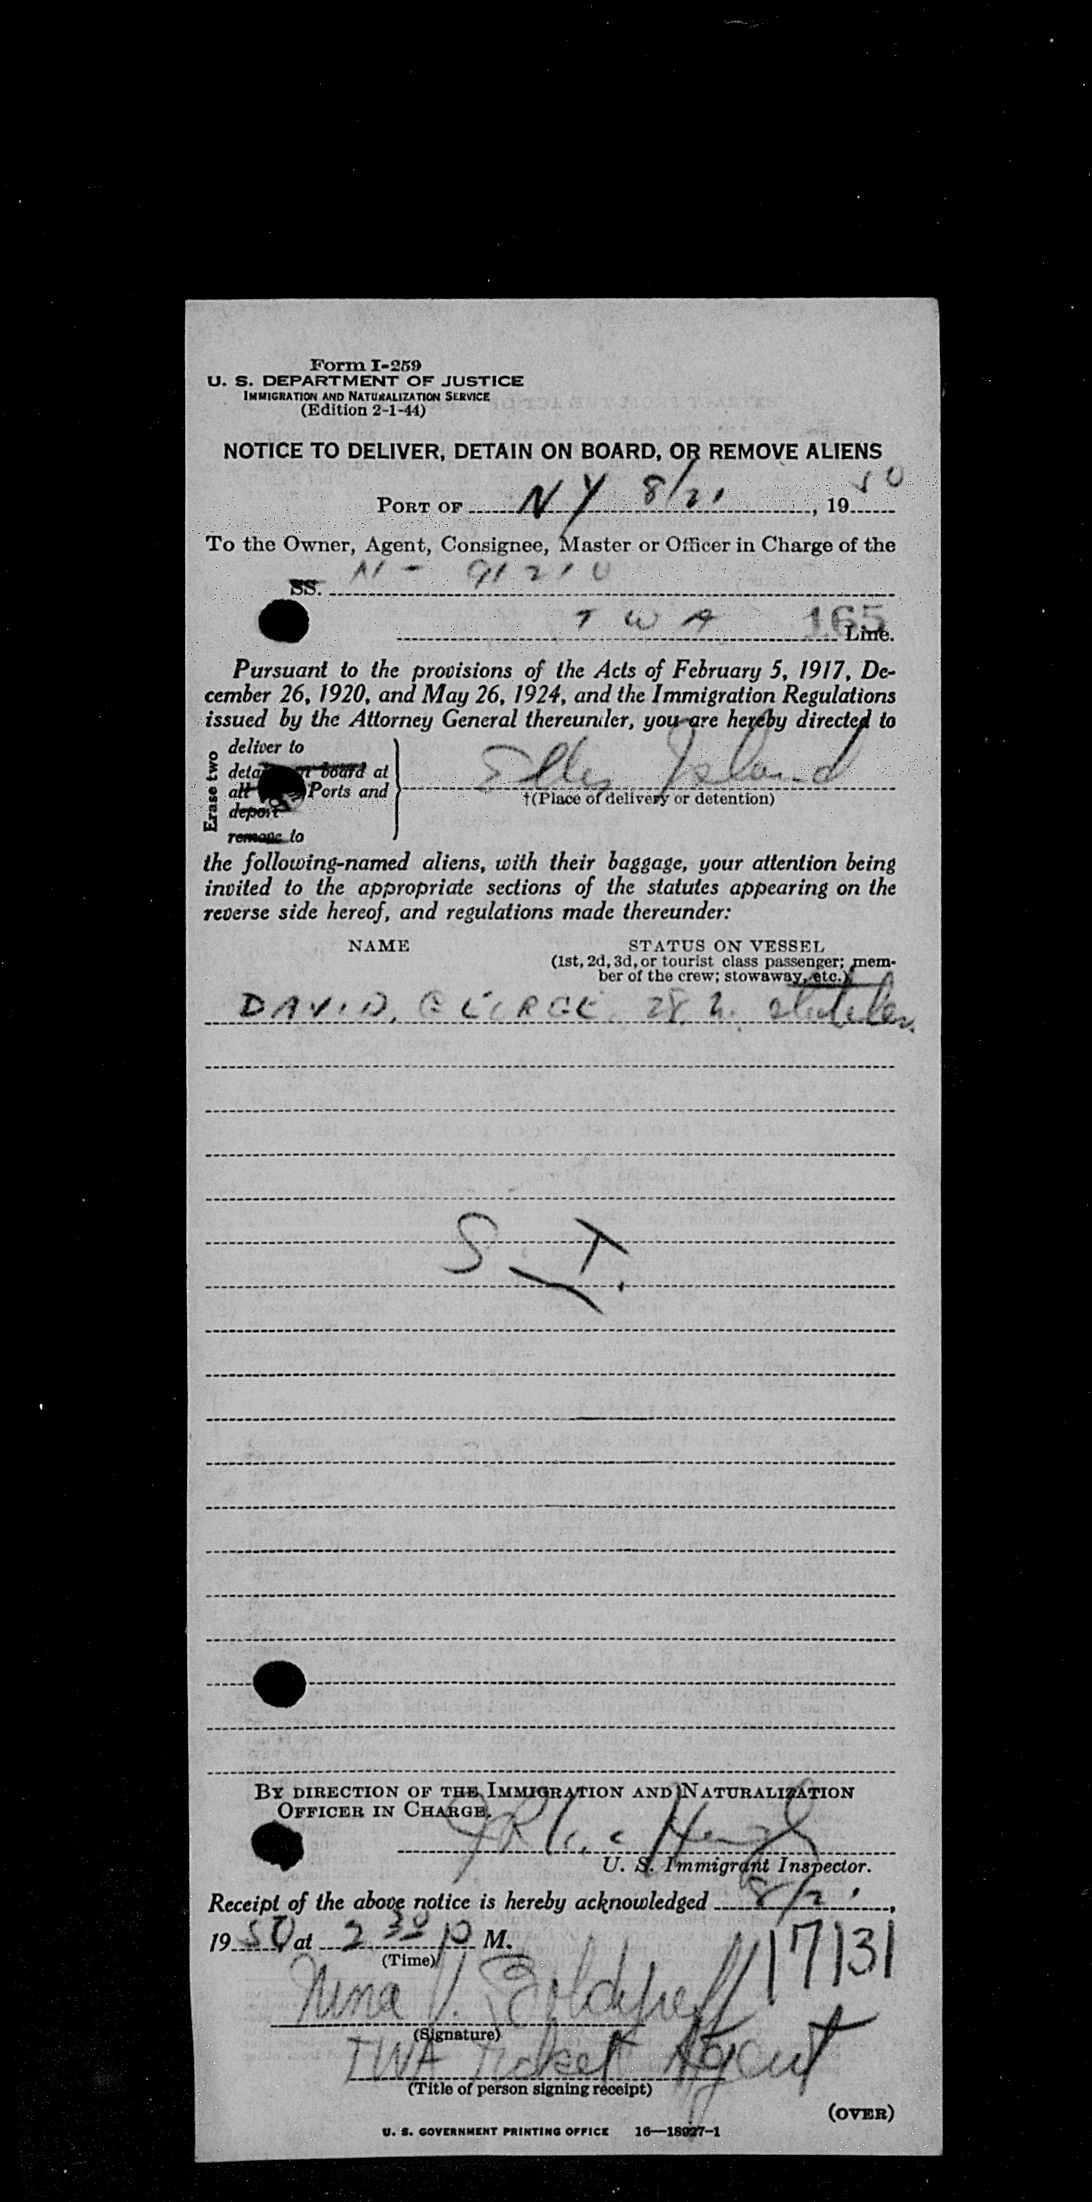 Form I-259
U. S. DEPARTMENT OF JUSTICE
IMMIGRATION AND NATURALIZATION SERVICE
(Edition 2-1-44)
NOTICE TO DELIVER, DETAIN ON BOARD, OR REMOVE ALIENS
PORT OF NY 8/21, 1950
To the Owner, Agent, Consignee, Master or Officer in Charge of the
SS. N - 91210
TWA 165 Line.
Pursuant to the provisions of the Acts of February 5, 1917, De-
cember 26, 1920, and May 26, 1924, and the Immigration Regulations
issued by the Attorney General thereunder, you are hereby directed to
Erase two
deliver to
board at
all Ports and
deport
remove to
Ellis Island
†(Place of delivery or detention)
the following-named aliens, with their baggage, your attention being
invited to the appropriate sections of the statutes appearing on the
reverse side hereof, and regulations made thereunder:
NAME STATUS ON VESSEL
(1st, 2d, 3d, or tourist class passenger; mem-
ber of the crew; stowaway, etc.)
DAVID, GEORGE, 28,
S. I.
BY DIRECTION OF THE IMMIGRATION AND NATURALIZATION
OFFICER IN CHARGE.
U. S. Immigrant Inspector.
Receipt of the above notice is hereby acknowledged 8/21,
1950, at 2 30 P M.
(Time)
17131
Nina V.
(Signature)
TWA Ticket Agent
(Title of person signing receipt)
(OVER)
U. S. GOVERNMENT PRINTING OFFICE 16—18927-1